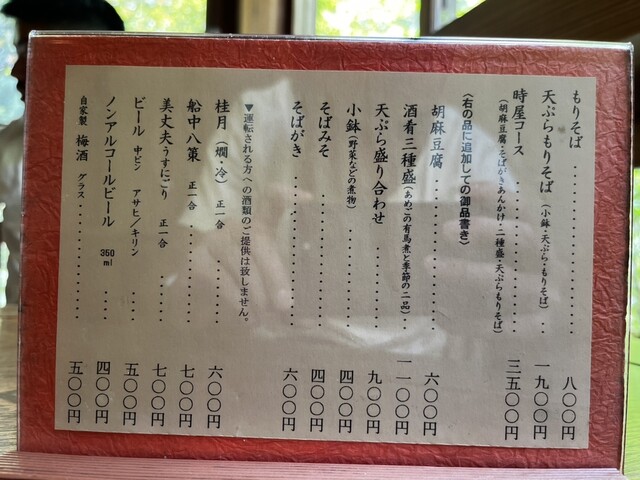 もりそば ・・・・・・・・・・・・・・ 八〇〇円
天ぷらもりそば （小鉢・天ぷら・もりそば）・・ 一九〇〇円
時屋コース ・・・・・・・・・・・・ 三五〇〇円
（胡麻豆腐・そばがきあんかけ・二種盛・天ぷらもりそば）
（右の品に追加しての御品書き）
胡麻豆腐 ・・・・・・・・・・・・ 六〇〇円
酒肴三種盛（あめごの有馬煮と季節の二品）・・ 一一〇〇円
天ぷら盛り合わせ ・・・・・・・・ 九〇〇円
小鉢（野菜などの煮物）・・・・・・・・ 四〇〇円
そばみそ ・・・・・・・・・・・・ 四〇〇円
そばがき ・・・・・・・・・・・・ 六〇〇円
▼運転される方への酒類のご提供は致しません。
桂月（燗・冷） 正一合 ・・・・・・ 六〇〇円
船中八策 正一合 ・・・・・・・・ 七〇〇円
美丈夫うすにごり 正一合 ・・・・ 七〇〇円
ビール 中ビン アサヒ／キリン ・・ 五〇〇円
ノンアルコールビール 350ml ・・・・ 四〇〇円
自家製 梅酒 グラス・・・・・・・・ 五〇〇円